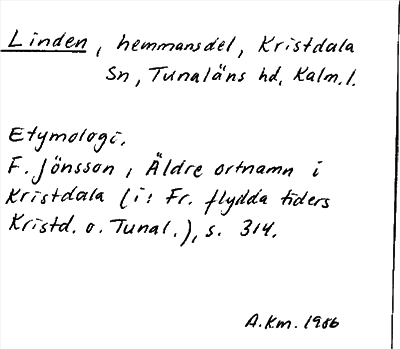 Linden, hemmansdel, Kristdala
Sn, Tunaläns hd. Kalm.l.
Etymologi.
F. Jönsson, Äldre ortnamn i
Kristdala (i: Fr. flydda tiders
Kristd. o. Tunal.), s. 314.
A.Km. 1986